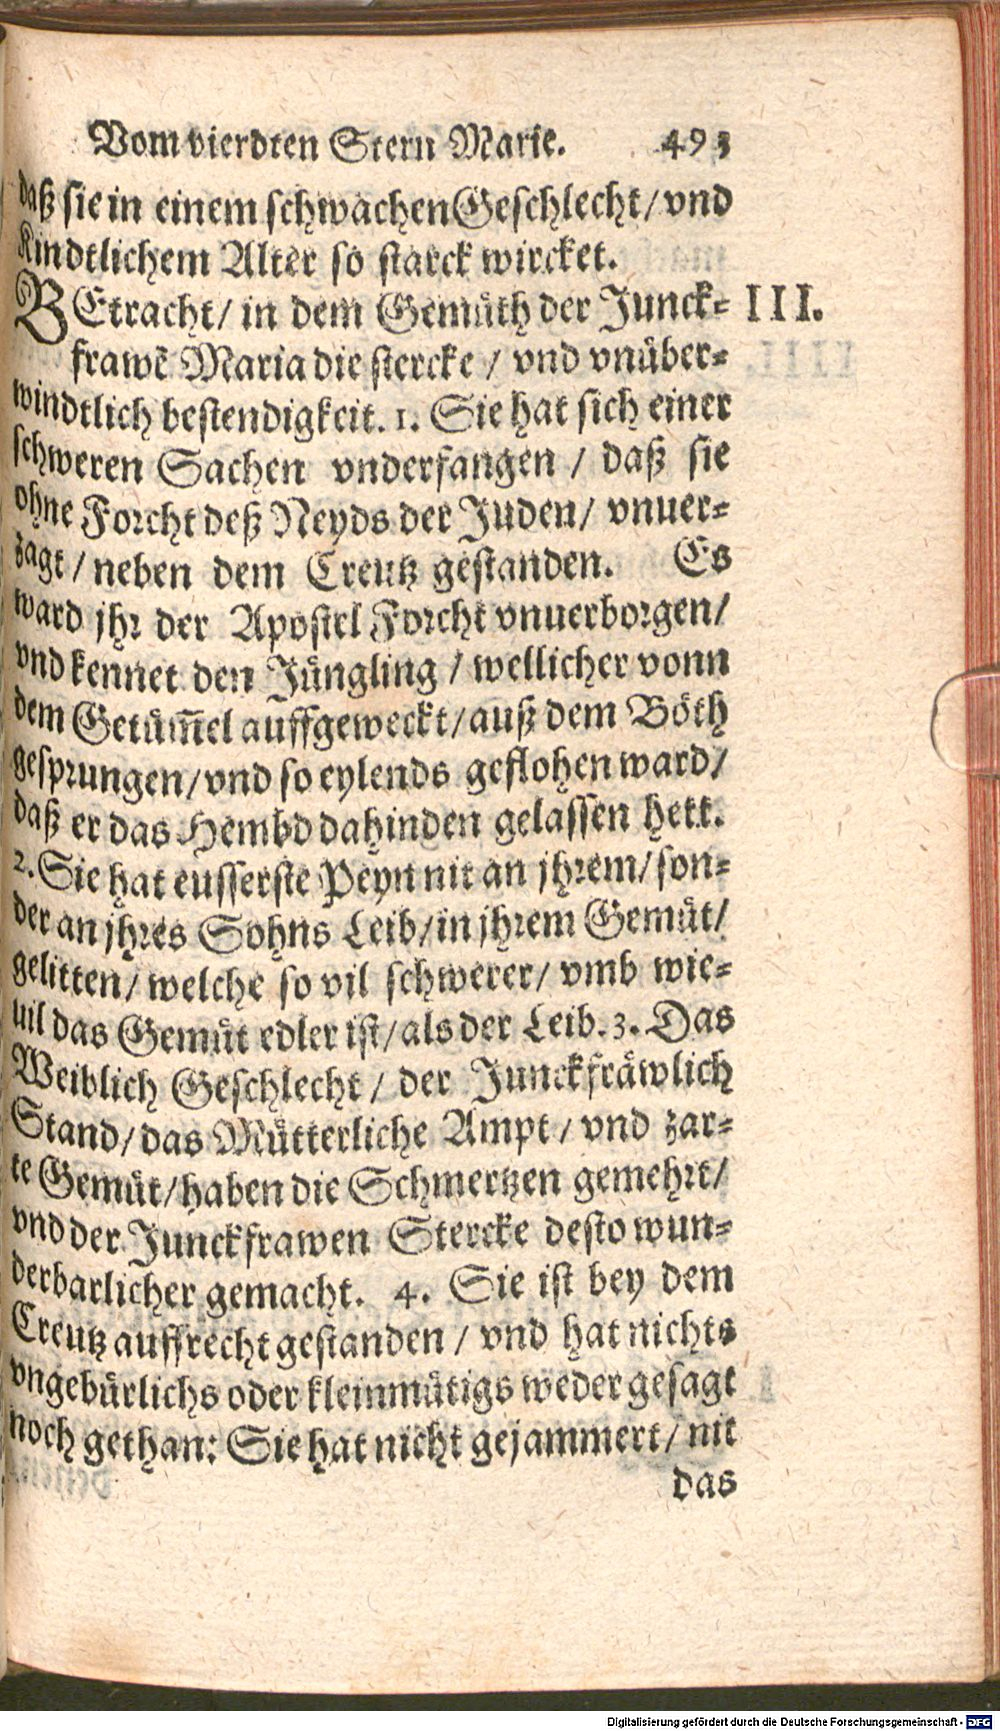 Vom vierdten Stern Marie. 493
daß sie in einem schwachen Geschlecht/ vnd
Kindtlichem Alter so starck wircket.
BEtracht/ in dem Gemüth der Junck- III.
frawē Maria die stercke / vnd vnüber-
windtlich bestendigkeit. 1. Sie hat sich einer
schweren Sachen vnderfangen / daß sie
ohne Forcht deß Neyds der Juden/ vnuer-
zagt / neben dem Creutz gestanden. Es
ward jhr der Apostel Forcht vnuerborgen/
vnd kennet den Jüngling / wellicher vonn
dem Getüm̄el auffgeweckt/ auß dem Böth
gesprungen/ vnd so eylends geflohen ward/
daß er das Hembd dahinden gelassen hett.
2. Sie hat eusserste Peyn nit an jhrem/ son-
der an jhres Sohns Leib/ in jhrem Gemüt/
gelitten/ welche so vil schwerer/ vmb wie-
uil das Gemüt edler ist/ als der Leib. 3. Das
Weiblich Geschlecht / der Junckfräwlich
Stand/ das Mütterliche Ampt / vnd zar-
te Gemüt/ haben die Schmertzen gemehrt/
vnd der Junckfrawen Stercke desto wun-
derbarlicher gemacht. 4. Sie ist bey dem
Creutz auffrecht gestanden / vnd hat nichts
vngebürlichs oder kleinmütigs weder gesagt
noch gethan: Sie hat nicht gejammert/ nit
das
Digitalisierung gefördert durch die Deutsche Forschungsgemeinschaft - DFG